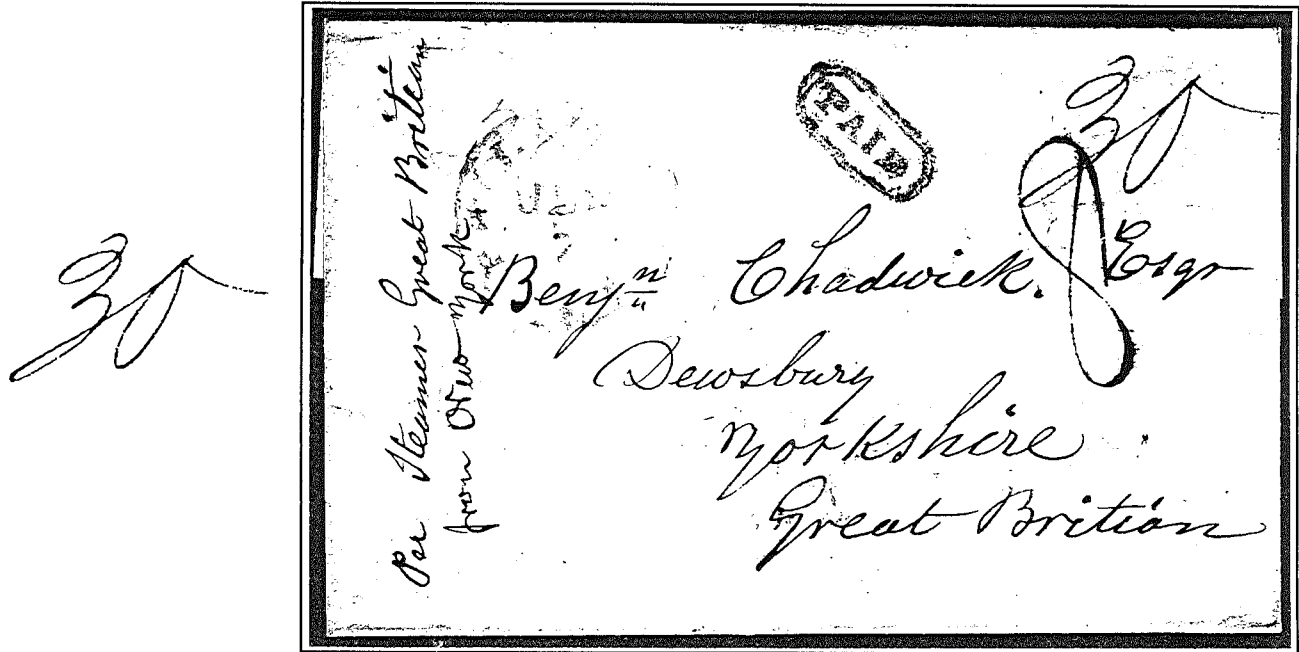 30
Par Steamer Great Britain
from New York
PAID
30
8
Benjn Chadwick. Esqr
Dewsbury
Yorkshire
Great Britian